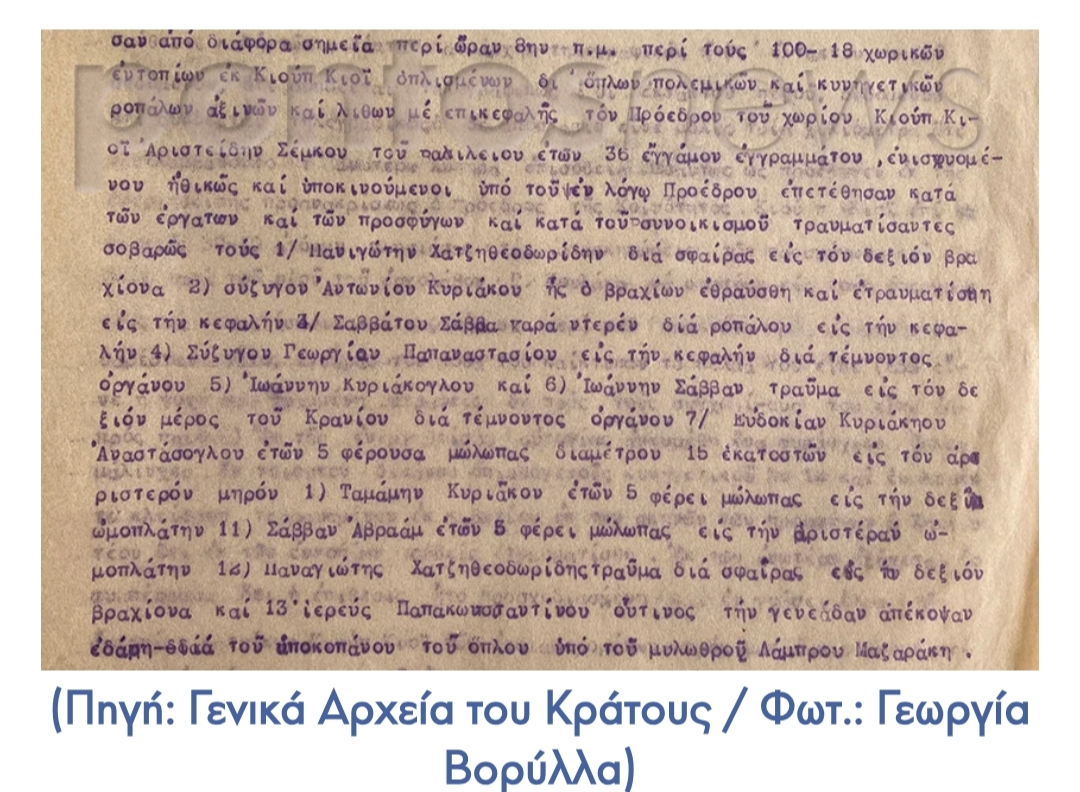 σαν από διάφορα σημεία περί ὥραν 8ην π.μ. περί τούς 100-18 χωρικῶν
ἐντοπίων ἐκ Κιούπ Κιοϊ ὁπλισμένων δι' ὅπλων πολεμικῶν καί κυνηγετικῶν
ροπάλων ἀξινῶν καί λιθων μέ ἐπικεφαλῆς τόν Πρόεδρον τοῦ χωρίου Κιούπ Κι-
οϊ Ἀριστείδην Σέμκου τοῦ ἐτῶν 36 ἔγγάμον ἐγγραμμάτου ,ἐνισχυομέ-
νου ἠθικῶς καί ὑποκινούμενοι ὑπό τοῦ ἐν λόγῳ Προέδρου ἐπετέθησαν κατά
τῶν ἐργατων καί τῶν προσφύγων καί κατά τοῦ συνοικισμοῦ τραυματίσαντες
σοβαρῶς τούς 1/ Πανιγώτην Χατζηθεοδωρίδην διά σφαίρας εἰς τόν δεξιόν βρα
χίονα 2) σύζυγον Ἀντωνίου Κυριάκου ἧς ὁ βραχίων ἐθραύσθη καί ἐτραυματίσθη
εἰς τήν κεφαλήν 3/ Σαββάτου Σάββα διά ροπάλου εἰς τήν κεφα-
λήν 4) Σύζυγου Γεωργίου Παπαναστασίου εἰς τήν κεφαλήν διά τέμνοντος
ὀργάνου 5) Ἰωάννην Κυριάκογλου καί 6) Ἰωάννην Σάββαν τραῦμα εἰς τόν δε
ξιόν μέρος τοῦ Κρανίου διά τέμνοντος ὀργάνου 7/ Εὐδοκίαν Κυριάκηου
Ἀναστάσογλου ἐτῶν 5 φέρουσα μώλωπας διαμέτρου 15 ἑκατοστῶν εἰς τόν ἀρ
ριστερόν μηρόν 1) Ταμάμην Κυριᾶκου ἐτῶν 5 φέρει μώλωπας εἰς τήν δεξιὰ
ὠμοπλάτην 11) Σάββαν Ἀβραάμ ἐτῶν 5 φέρει μώλωπας εἰς τήν ἀριστέραν ὠ-
μοπλάτην 12) Παναγιώτης Χατζηθεοδωρίδης τραῦμα διά σφαίρας δεξιόν
βραχίονα καί 13 ἱερεύς Παπακωνσαντίνου οὗτινος τήν γενεάδαν ἀπέκοψαν
τοῦ ὑποκοπάνου τοῦ ὅπλου ὑπό τοῦ μυλωθροῦ Λάμπρου Μαζαράκη .
pontosnews
(Πηγή: Γενικά Αρχεία του Κράτους / Φωτ.: Γεωργία
Βορύλλα)